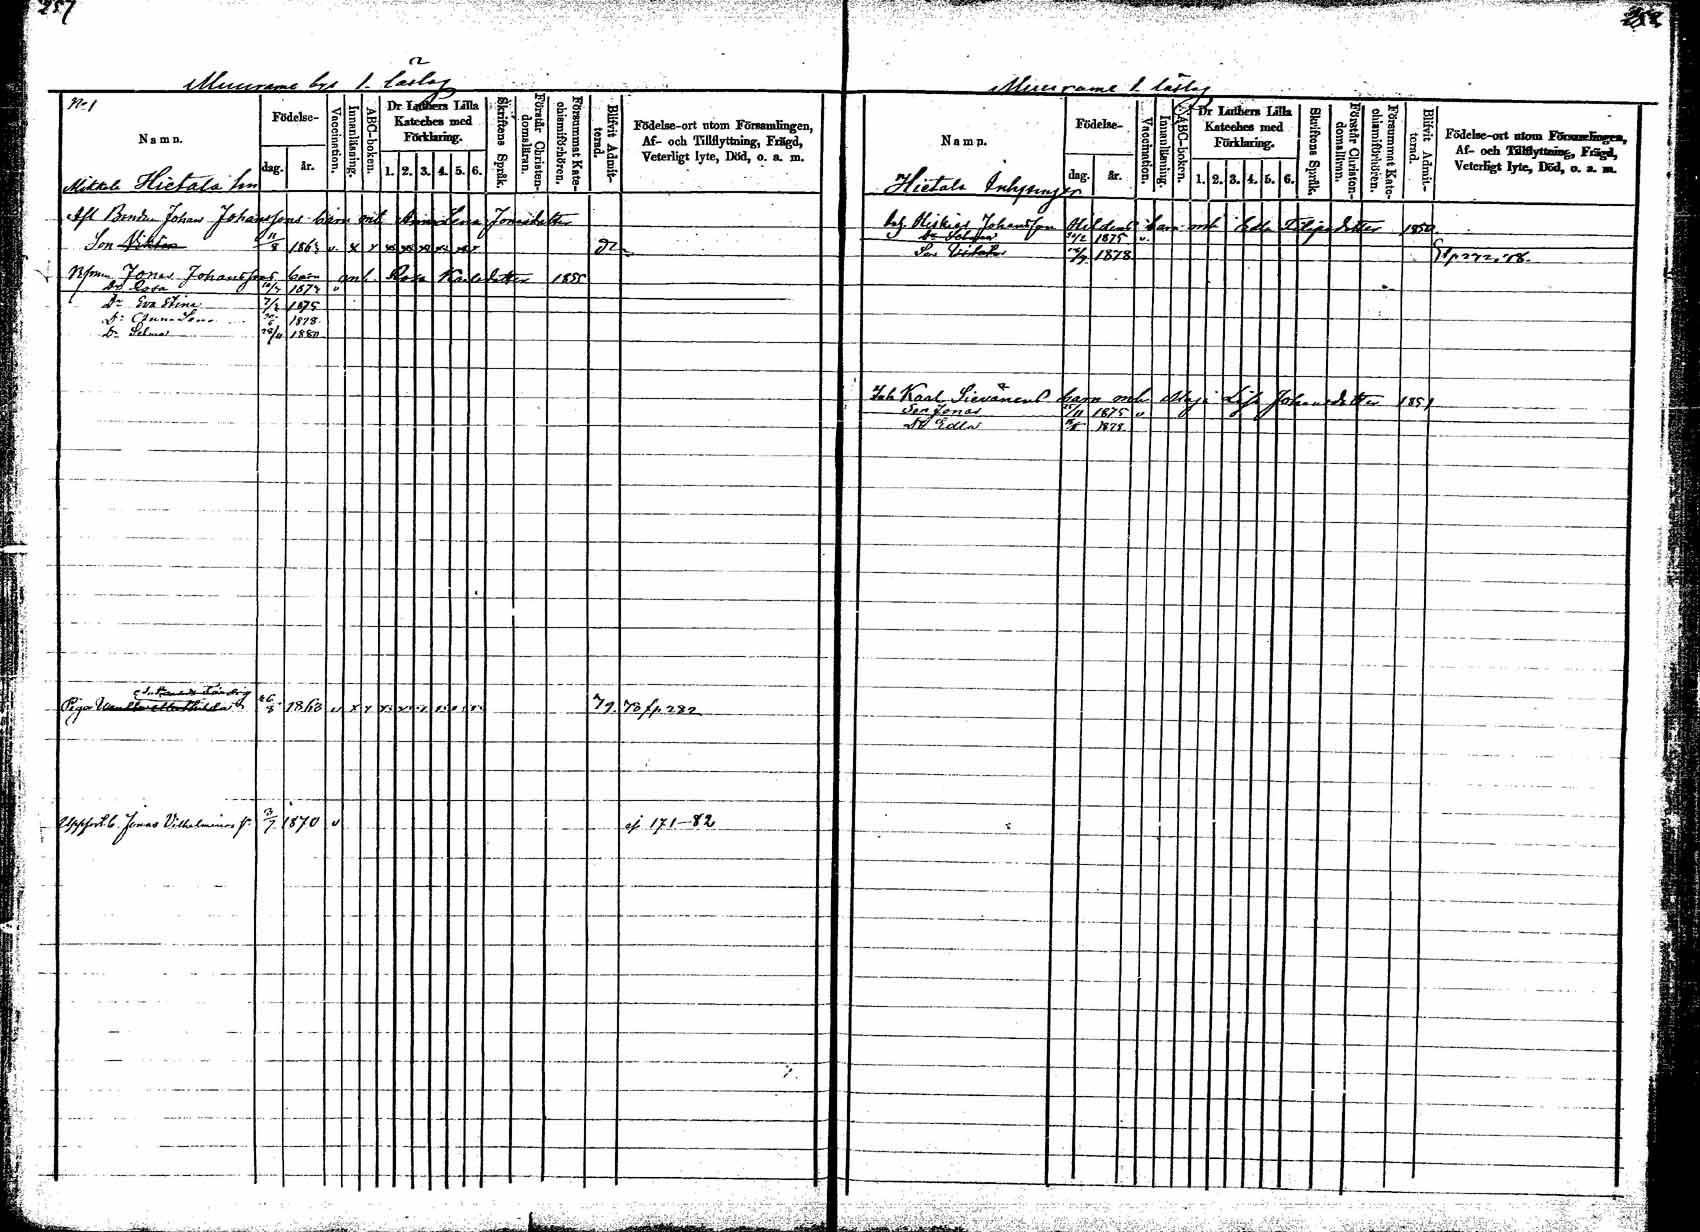 257
Muurame bys 1. läslag
No 1
Namn.
Födelse-
dag.
år.
Vaccination.
Innanläsning.
ABC-boken.
Dr Luthers Lilla
Kateches med
Förklaring.
1. 2. 3. 4. 5. 6.
Skriftens Språk.
Förstår Christen-
domsläran.
Försummat Kate-
chismiförhören.
Blifvit Admit-
terad.
Födelse-ort utom Församlingen,
Af- och Tillflyttning, Frägd,
Veterligt lyte, Död, o. s. m.
Mikkola Hietala hn
Afl Bonden Johan Johanssons barn mt Anna Lena Jonasdotter
Son Viktor 11/8 1863 v x x x x x x x x
Jonas Johanssons barn mh Rosa Karlsdotter 1855
Dr Rosa 1872 v
Dr Eva Stina 7/2 1875
Dr Anna Lena 1878
Dr Selma 28/11 1880
Piga 26/3 1863 v x x 79. fp 282
Jonas Vilhelminas s. 3/7 1870 v cf 171-82
258
Muurame 1. läslag
Namn.
Födelse-
dag.
år.
Vaccination.
Innanläsning.
ABC-boken.
Dr Luthers Lilla
Kateches med
Förklaring.
1. 2. 3. 4. 5. 6.
Skriftens Språk.
Förstår Christen-
domsläran.
Försummat Kate-
chismiförhören.
Blifvit Admit-
terad.
Födelse-ort utom Församlingen,
Af- och Tillflyttning, Frägd,
Veterligt lyte, Död, o. s. m.
Hietala Inhysingar
Hiskias Johansson Hildens barn mh Edla Filipsdotter 1850
1875 v.
Son 1878
Inh Karl Sievänens barn mh Maja Lisa Johansdotter 1851
Son Jonas 1875 v
Dr Edla 1878